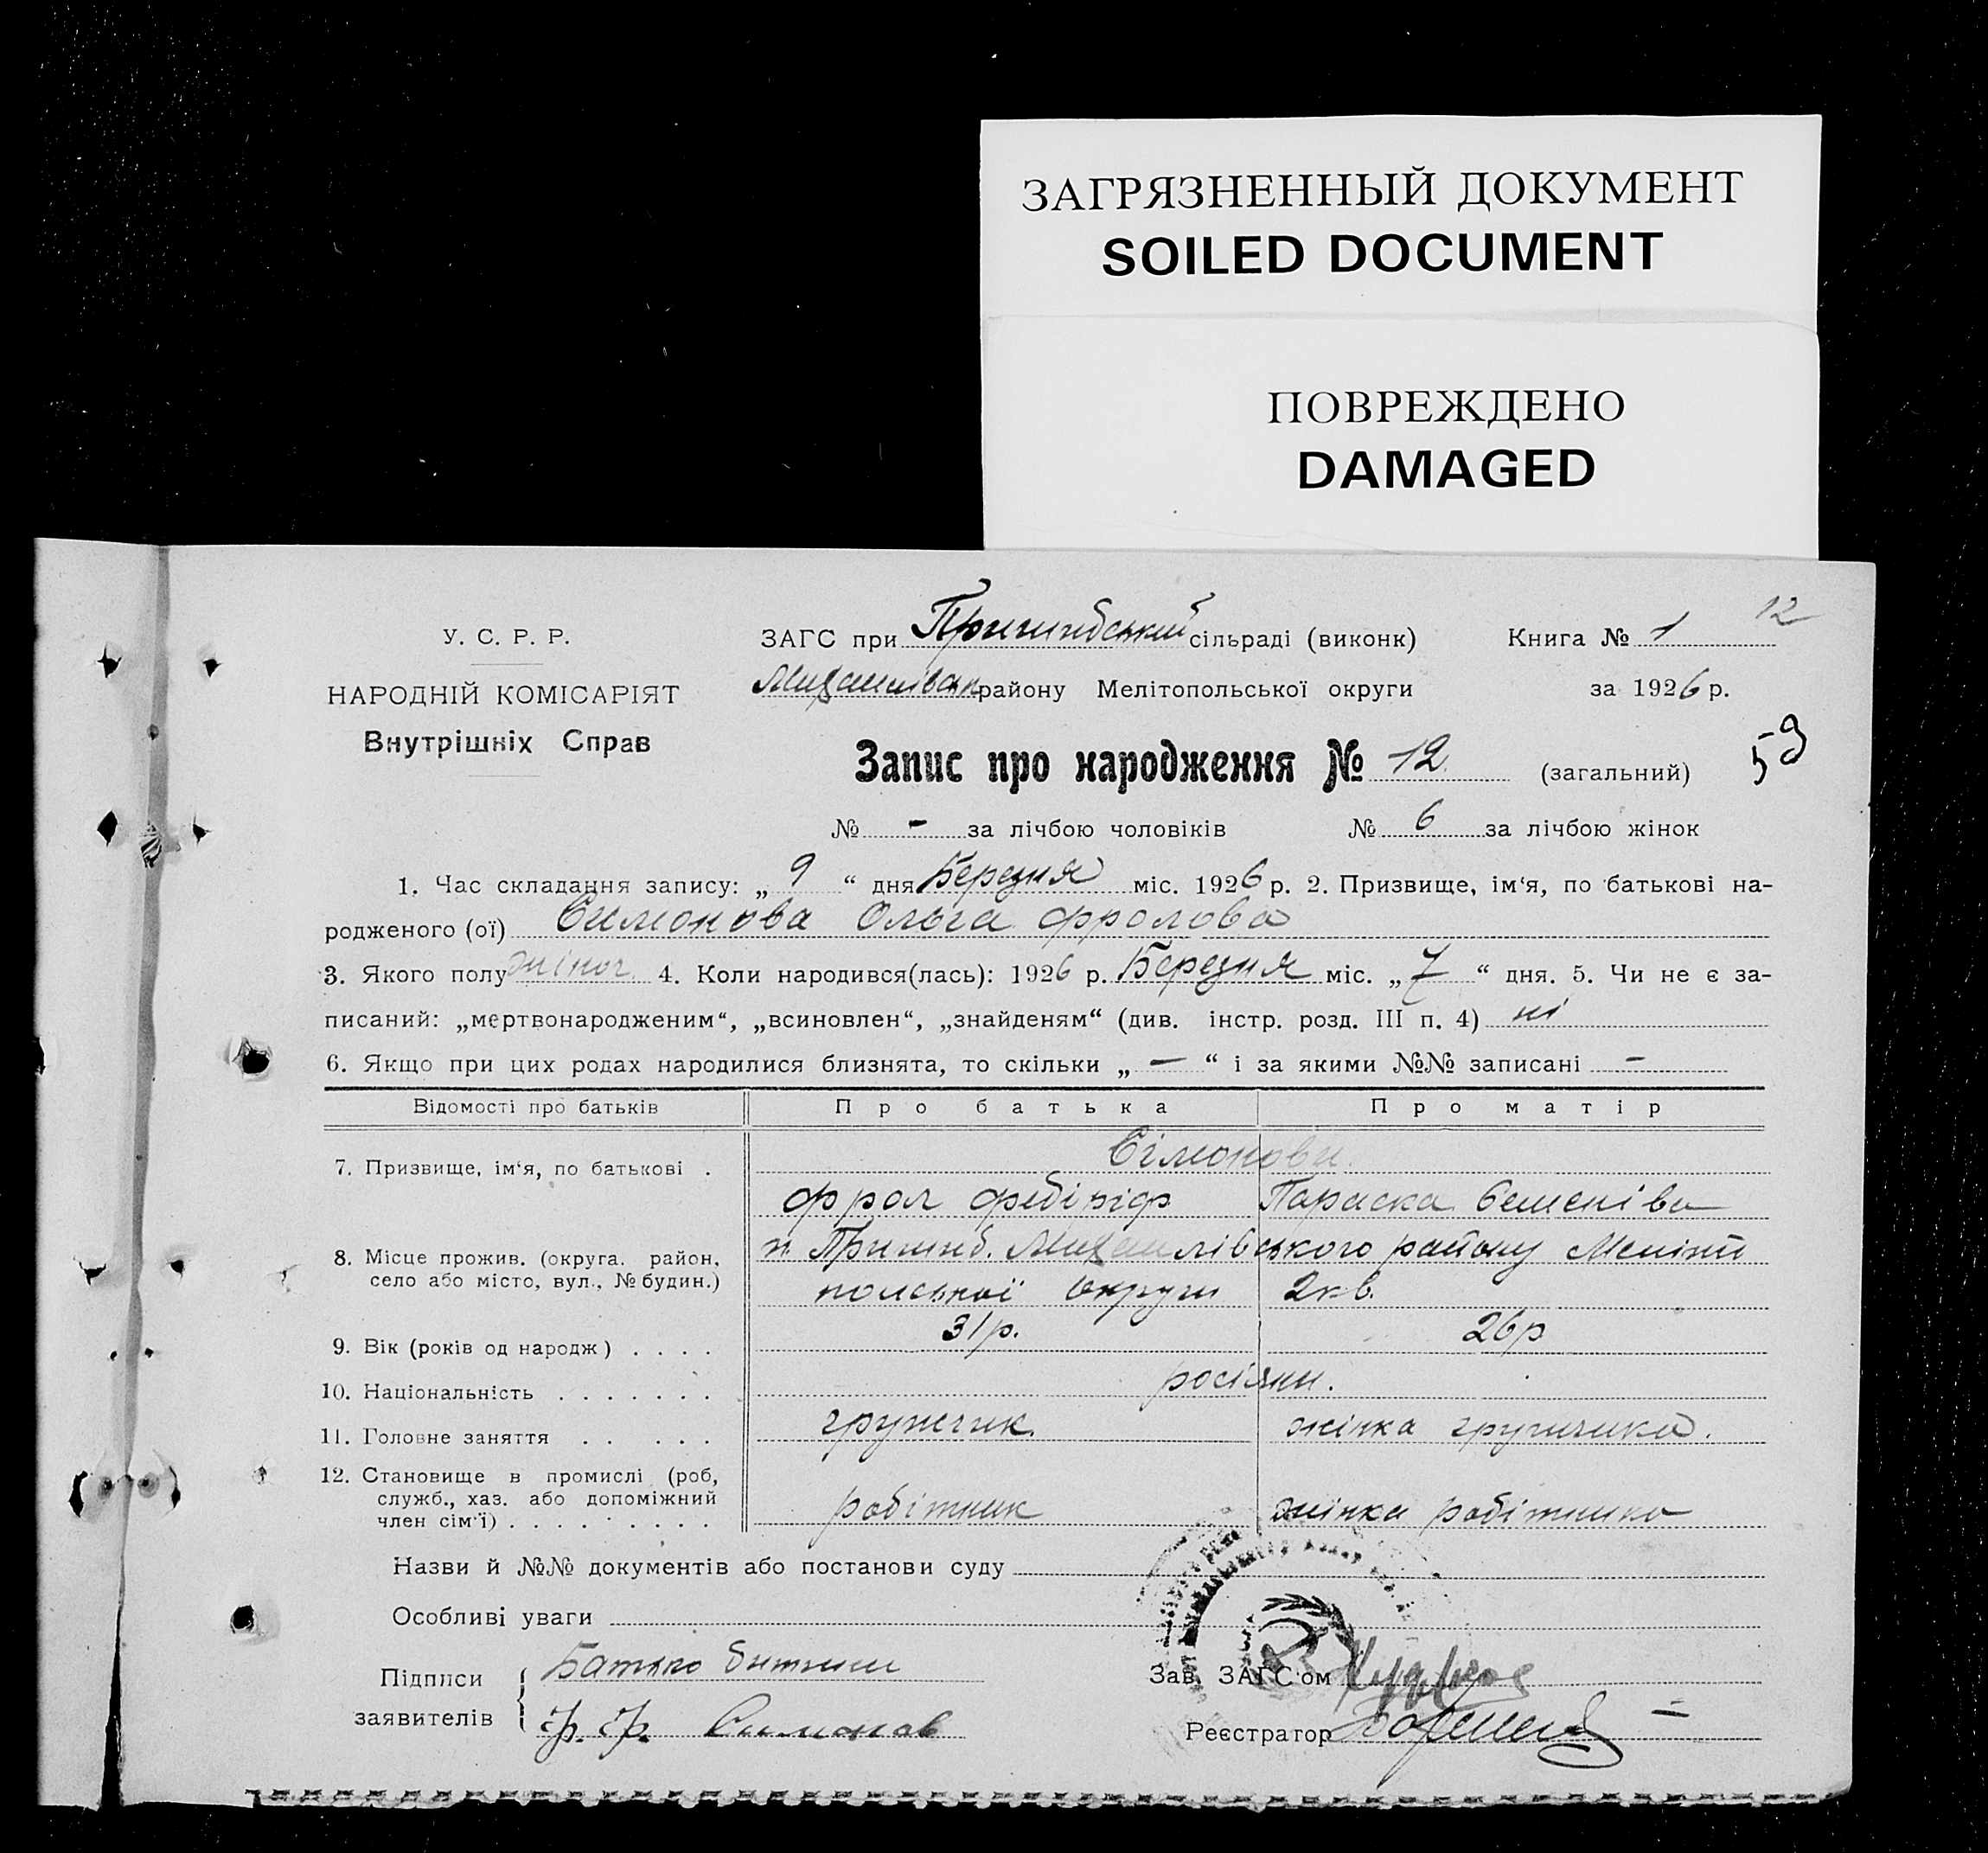 ЗАГРЯЗНЕННЫЙ ДОКУМЕНТ
SOILED DOCUMENT
ПОВРЕЖДЕНО
DAMAGED
12
У. С. Р. Р.
НАРОДНІЙ КОМІСАРІЯТ
Внутрішніх Справ
ЗАГС при Пришибський сільраді (виконк)
Книга № 1
району Мелітопольської округи
за 1926 р.
Запис про народження № 12 (загальний)
59
№ - за лічбою чоловіків № 6 за лічбою жінок
1. Час складання запису: „ 9 “ дня Березня міс. 1926 р. 2. Призвище, ім‘я, по батькові на-
родженого (ої) Симонова Ольга Фролова
3. Якого полу жіноч. 4. Коли народився(лась): 1926 р. Березня міс. „ 7 “ дня. 5. Чи не є за-
писаний: „мертвонародженим“, „всиновлен“, „знайденям“ (див. інстр. розд. III п. 4) ні
6. Якщо при цих родах народилися близнята, то скільки „ — “ і за якими №№ записані —
Відомості про батьків
Про батька
Про матір
7. Призвище, ім‘я, по батькові .
Сімонови
Фрол
Параска Семенівна
8. Місце прожив. (округа. район,
село або місто, вул., № будин.)
п. Пришиб. Михайлівського району Меліто
польської округи 2 кв.
9. Вік (років од народж) . . . .
31 р.
26 р
10. Національність . . . . . . .
росіяни.
11. Головне заняття . . . . .
грузчик.
жінка грузчика.
12. Становище в промислі (роб,
служб., хаз. або допоміжний
член сім‘ї) . . . . . . . . .
робітник
жінка робітника
Назви й №№ документів або постанови суду
Особливі уваги
Підписи
заявителів
Батько
Ф. Ф. Симонов
Зав. ЗАГС‘ом
Реєстратор